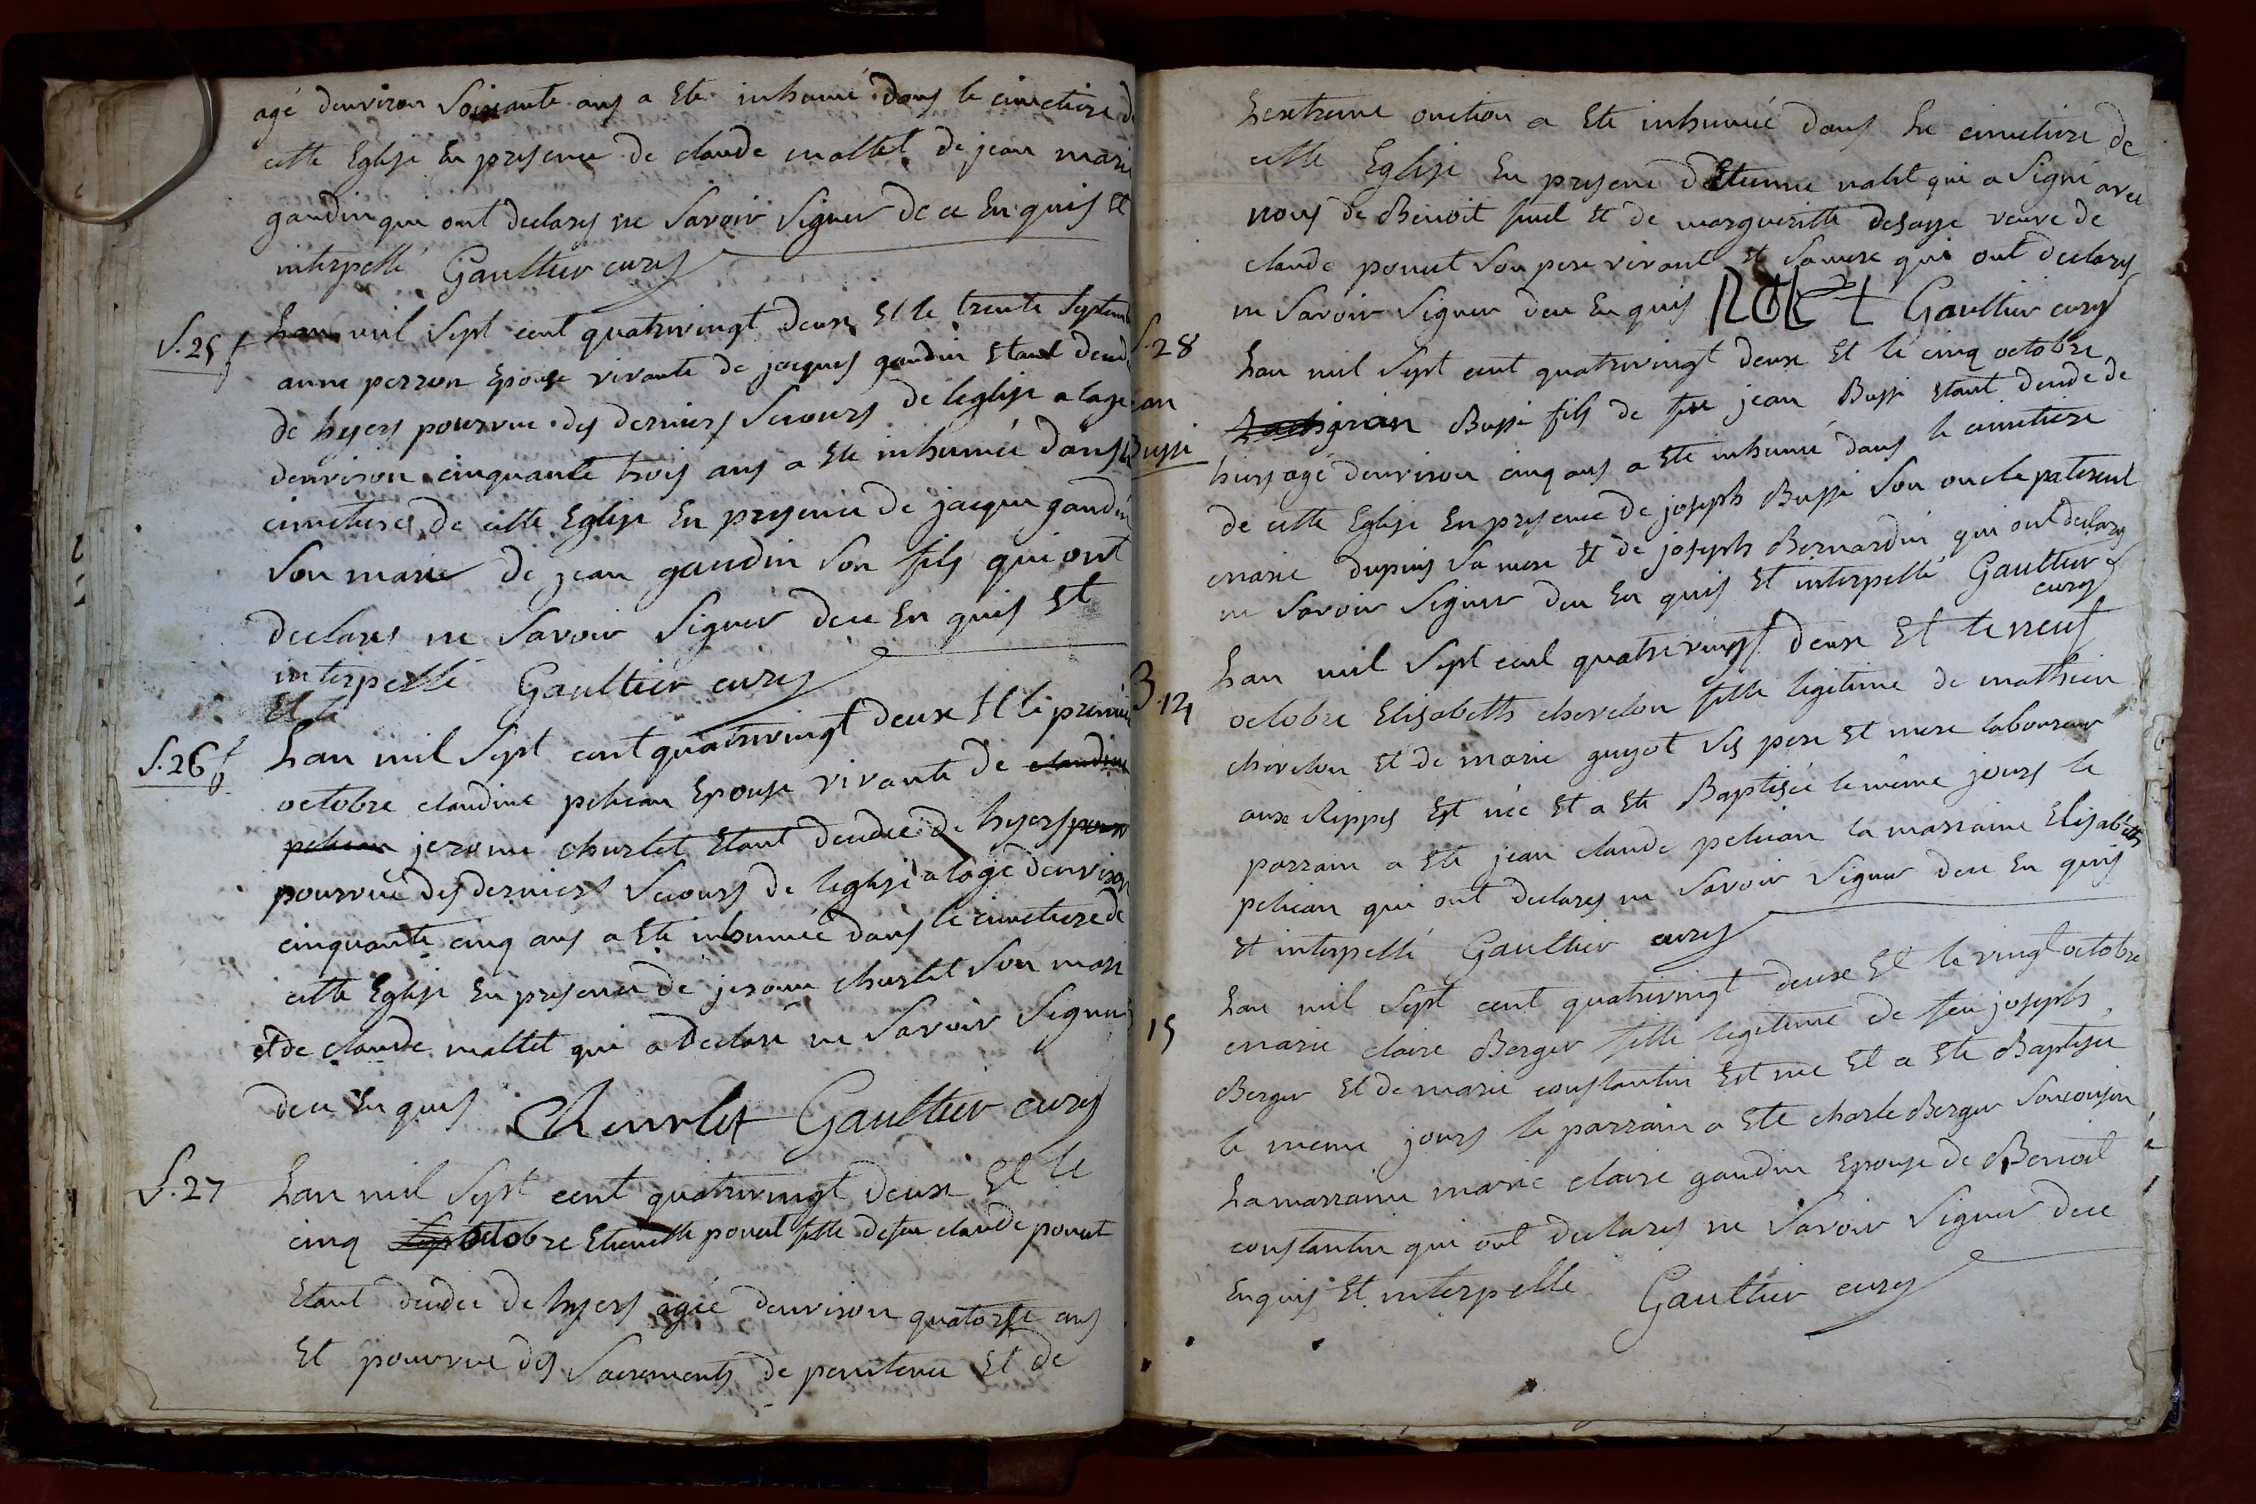 agé denviron Soixante ans a Ete inhumé dans le cimetiere de
cette Eglise En presence de claude mallet de jean marie
gaudin qui ont declares ne Savoir Signer de ce Enquis Et
interpellé Gaultier curé
S. 25 f
Lan mil Sept cent quatrevingt deux Et le trente Septembre
anne perron Epouse vivante de jacques gaudin Etant decedée
de hyers pourvue des derniers Secours de leglise a lage
denviron cinquante trois ans a Ete inhumée dans le
cimetiere de cette Eglise En presence de jacque gaudin
Son marie de jean gaudin Son fils qui ont
declares ne Savoir Signer dece En quis Et
interpellé Gaultier curé
Et le
S. 26 f
Lan mil Sept cent quatrevingt deux Et le premier
octobre claudine pelican Epouse vivante de claudine
pelican jerome churlet Etant decedée de hyers pour
pourvue des derniers Secours de leglise a lage denviron
cinquante cinq ans a Ete inhumée dans le cimetiere de
cette Eglise En presence de jerome churlet Son mari
et de claude mallet qui a declare ne Savoir Signer
dece En quis Churlet Gaultier curé
S. 27
Lan mil Sept cent quatrevingt deux Et le
cinq Sept octobre Etiennette poncet fille de feu claude poncet
Etant decedee de hyers agée denviron quatorse ans
Et pourvue des Sacrements de penitence Et de
Lextreme onction a Ete inhumée dans Le cimetiere de
cette Eglise En presence d'Etienne nalet qui a Signé avec
nous de Benoit Et de margueritte veuve de
claude poncet Son pere vivant Et Sa mere qui ont declares
ne Savoir Signer dece En quis Nalet Gaultier curé
S. 28
jean
Bussi
Lan mil Sept cent quatrevingt deux Et le cinq octobre
jean Bussi fils de feu jean Bussi Etant decede de
hiers agé denviron cinq ans a Ete inhumé dans le cimetiere
de cette Eglise En presence de joseph Bussi Son oncle paternel
marie dupuis Sa mere Et de joseph Bernardin qui ont declares
ne Savoir Signer dece En quis Et interpellé Gaultier
curé
B. 14
Lan mil Sept cent quatrevingt deux Et le neuf
octobre Elisabeth chevelon fille legitime de mathieu
chevelon Et de marie guyot Ses pere Et mere laboureur
aux Rippes Est née Et a Ete Baptisée le même jours le
parrain a Ete jean claude pelican la marraine Elisabeth
pelican qui ont declares ne Savoir Signer dece En quis
Et interpellé Gaultier curé
15
Lan mil Sept cent quatrevingt deux Et le vingt octobre
marie claire Berger fille legitime de feu joseph
Berger Et de marie constantin Est nee Et a Ete Baptisee
le meme jours le parrain a Ete charle Berger Son cousin
La marraine marie claire gaudin Epouse de Benoit
constantin qui ont declares ne Savoir Signer dece
Enquis Et interpelle Gaultier curé